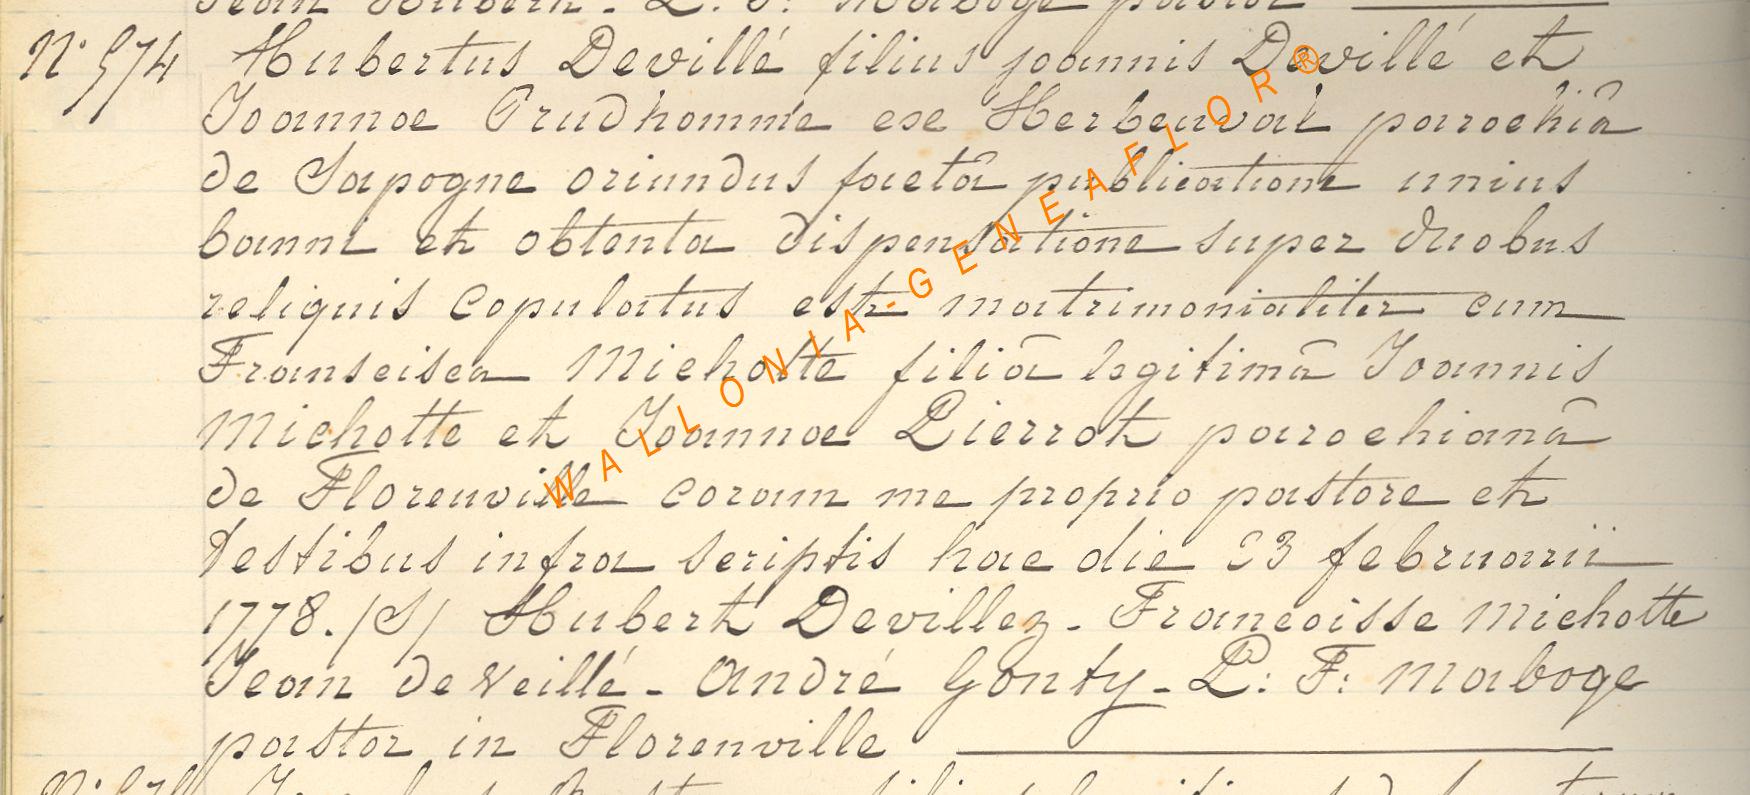 Jean Hubert. L. F. Maboge pastor
N° 574 Hubertus Devillé filius joannis Devillé et
Joannae Prudhomme exe Herbeuval parochiâ
de Sapogne oriundus factâ publicatione unius
banni et obtenta dispensatione super duobus
reliquis copulatus est matrimonialiter cum
Franseisca Michotte filiâ legitimâ Joannis
Michotte et Joannae Pierrot parochianâ
de Florenville coram me proprio pastore et
testibus infra scriptis hac die 23 februarii
1778. /S/ Hubert Devillez - Francoisse Michotte
Jean de Veillé - André Gonty - L: F: Maboge
pastor in Florenville
WALLONIA-GENEAFLOR®